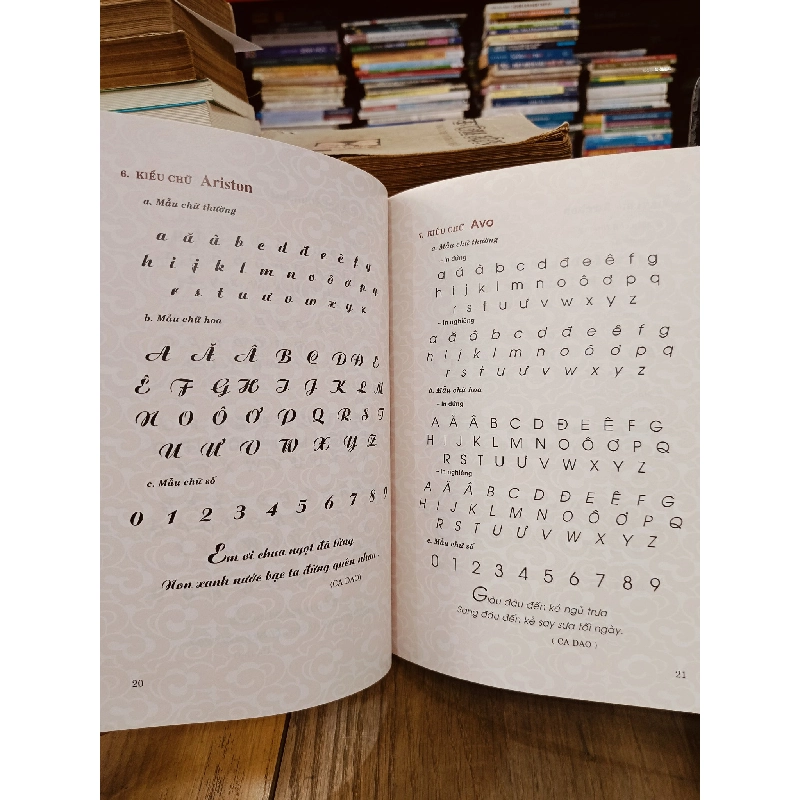 6. KIỂU CHỮ Ariston
a. Mẫu chữ thường
a ă â b c d đ e ê f g
h i j k l m n o ô ơ p q
r s t u ư v w x y z
b. Mẫu chữ hoa
A Ă Â B C D Đ E
Ê F G H I J K L M
N O Ô Ơ P Q R S T
U Ư V W X Y Z
c. Mẫu chữ số
0 1 2 3 4 5 6 7 8 9
Em ơi chua ngọt đã từng
Non xanh nước bạc ta đừng quên nhau.
(CA DAO)
20
7. KIỂU CHỮ Avo
a. Mẫu chữ thường
- In đứng
a ă â b c d đ e ê f g
h i j k l m n o ô ơ p q
r s t u ư v w x y z
- In nghiêng
a ă â b c d đ e ê f g
h i j k l m n o ô ơ p q
r s t u ư v w x y z
b. Mẫu chữ hoa
- In đứng
A Ă Â B C D Đ E Ê F G
H I J K L M N O Ô Ơ P Q
R S T U Ư V W X Y Z
- In nghiêng
A Ă Â B C D Đ E Ê F G
H I J K L M N O Ô Ơ P Q
R S T U Ư V W X Y Z
c. Mẫu chữ số
0 1 2 3 4 5 6 7 8 9
Giàu đâu đến kẻ ngủ trưa
Sang đâu đến kẻ say sưa tối ngày.
( CA DAO )
21